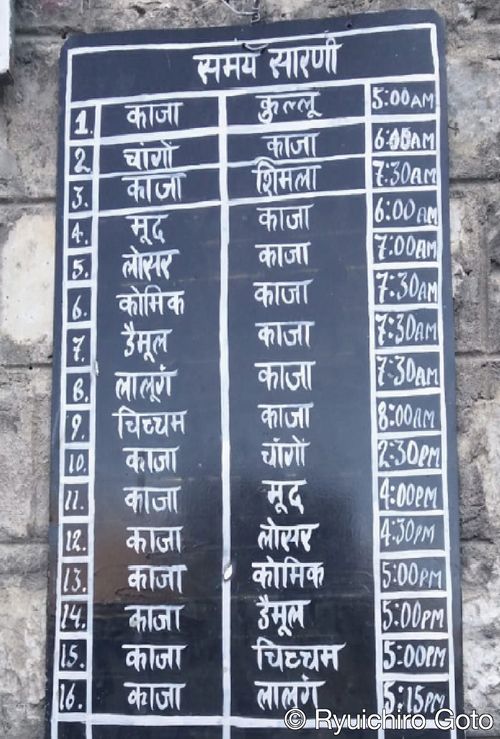 समय सारणी
1. काजा कुल्लू 5:00AM
2. चांगो काजा 6:45AM
3. काजा शिमला 7:30AM
4. मूद काजा 6:00AM
5. लोसर काजा 7:00AM
6. कोमिक काजा 7:30AM
7. डैमूल काजा 7:30AM
8. लालूगं काजा 7:30AM
9. चिच्चम काजा 8:00AM
10. काजा चांगो 2:30PM
11. काजा मूद 4:00PM
12. काजा लोसर 4:30PM
13. काजा कोमिक 5:00PM
14. काजा डैमूल 5:00PM
15. काजा चिच्चम 5:00PM
16. काजा लालगं 5:15PM
© Ryuichiro Goto